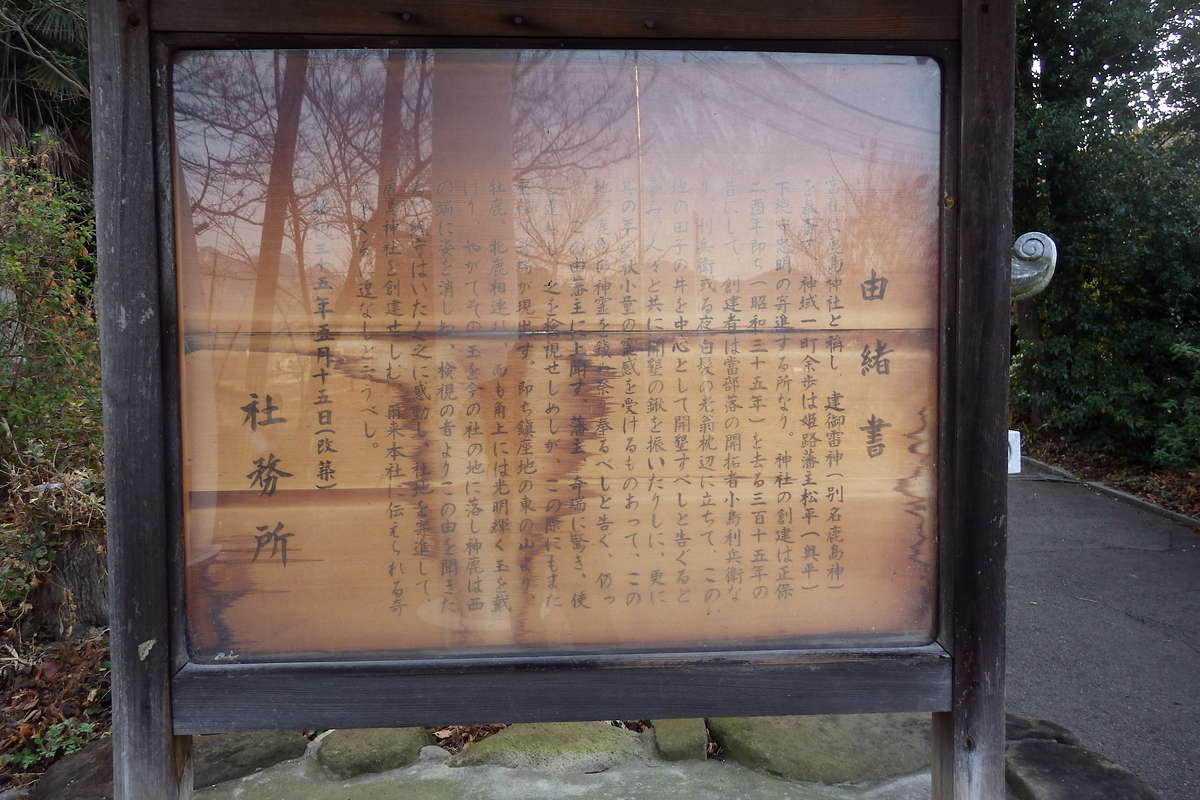 由緒書
当社は鹿島神社と称し 建御雷神(別名鹿島神)
を奉斎す 神域一町余歩は姫路藩主松平(興平)
下総守忠明の寄進する所なり。神社の創建は正保
二酉年即ち(昭和三十五年)を去る三百十五年の
昔にして、創建者は當部落の開拓者小島利兵衛な
り 利兵衛或る夜白髪の老翁枕辺に立ちて、この
地の田子の井を中心として開墾すべしと告ぐると
人々と共に開墾の鍬を振いたりしに、更に
の小童の霊感を受けるものあって、この
地に鹿島の神霊を鎮め祭り奉るべしと告ぐ、仍っ
この由藩主に上聞す 藩主 奇瑞に驚き、使
之を検視せしめしが、この際にもまた
が現出す。即ち鎮座地の東の山より、
牡鹿 牝鹿相連り、而も角上には光明輝く玉を戴
けり、やがてその玉を今の社の地に落し神鹿は西
の満に姿を消しぬ、検視の者よりこの由を聞きた
はいたく之に感動し、社地を寄進して、
鹿島神社を創建せしむ 爾来本社に伝えられる奇
遑なしと云うべし。
昭和三十五年五月十五日(改築)
社務所